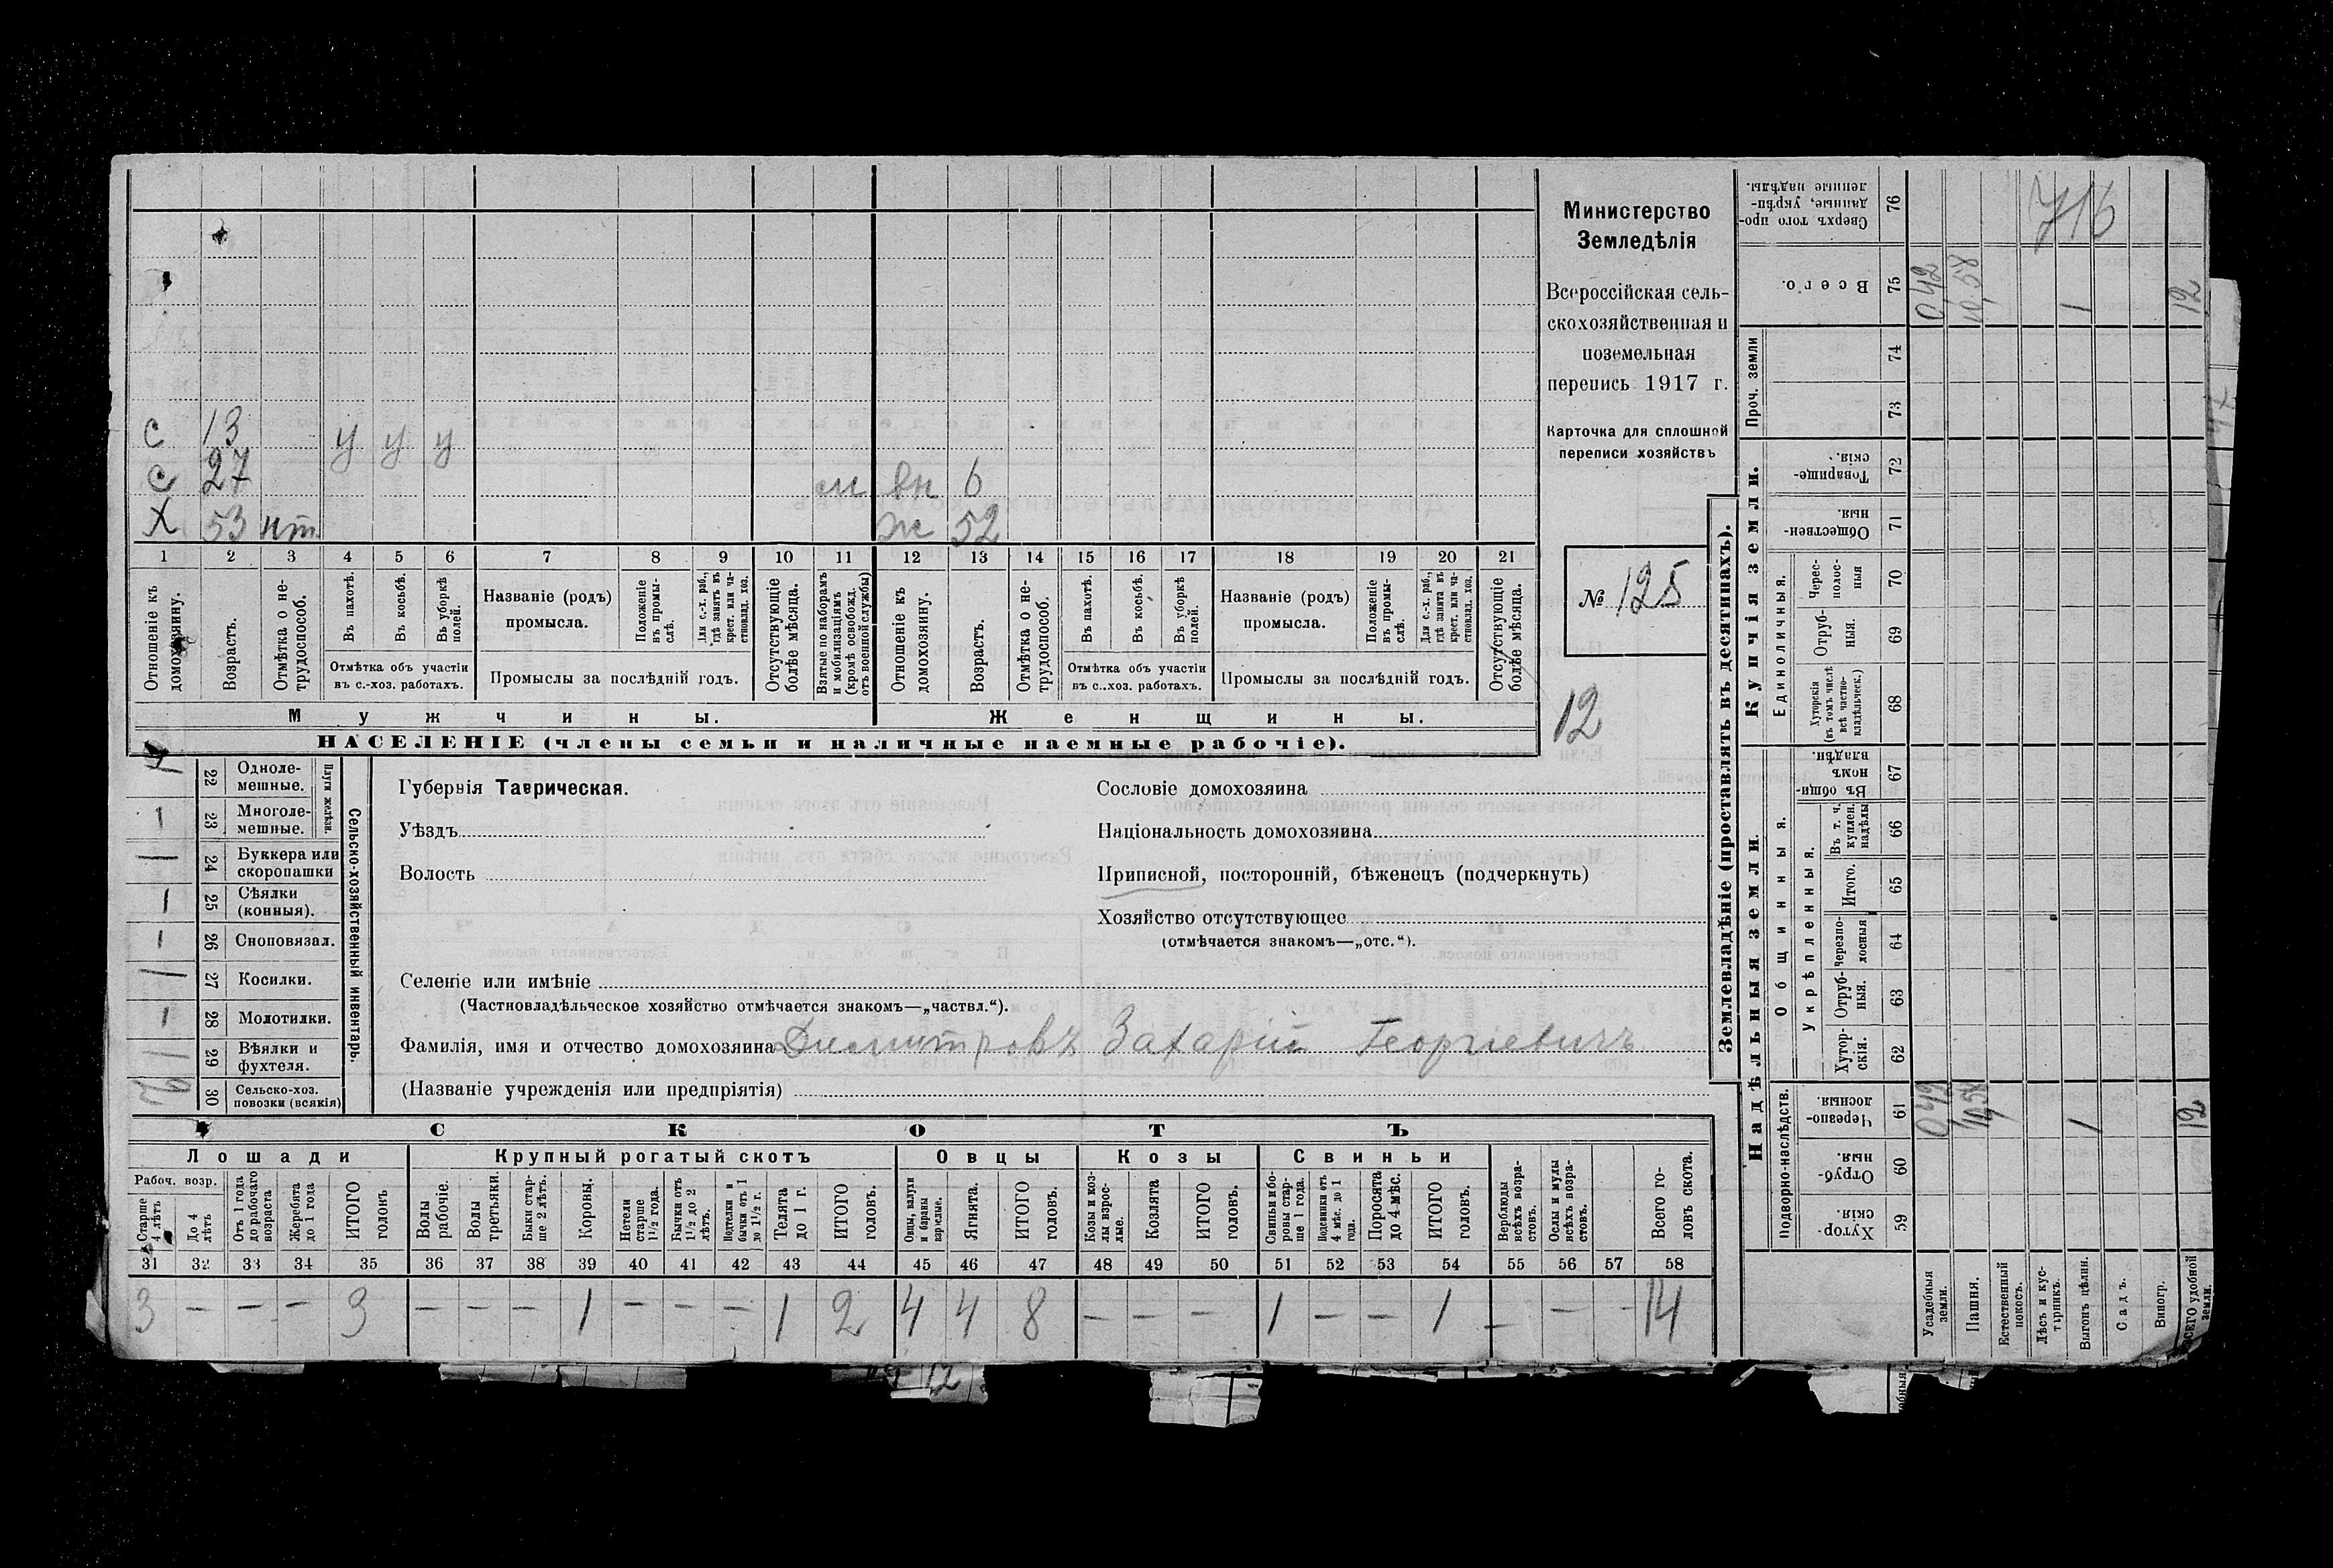 Министерство
Земледѣлія
Всероссійская сель-
скохозяйственная и
поземельная
перепись 1917 г.
Карточка для сплошной
переписи хозяйствъ
№ 125
12
С 13 у у у
С 27 м вн 6
Х 53 нт ж 52
1 2 3 4 5 6 7 8 9 10 11 12 13 14 15 16 17 18 19 20 21
Отношеніе къ домохозяину.
Возрастъ.
Отмѣтка о не-трудоспособ.
Въ пахотѣ.
Въ косьбѣ.
Въ уборкѣ полей.
Отмѣтка объ участіи
въ с.-хоз. работахъ.
Названіе (родъ)
промысла.
Положеніе въ промы-слѣ.
Для с.-х. раб., гдѣ занятъ въ крест. или ча-стновлад. хоз.
Промыслы за послѣдній годъ.
Отсутствующіе болѣе мѣсяца.
Взятые по наборамъ и мобилизаціямъ (кромѣ освобожд. отъ военной службы)
Отношеніе къ домохозяину.
Возрастъ.
Отмѣтка о не-трудоспособ.
Въ пахотѣ.
Въ косьбѣ.
Въ уборкѣ полей.
Отмѣтка объ участіи
въ с.-хоз. работахъ.
Названіе (родъ)
промысла.
Положеніе въ промы-слѣ.
Для с.-х. раб., гдѣ занята въ крест. или ча-стновлад. хоз.
Промыслы за послѣдній годъ.
Отсутствующіе болѣе мѣсяца.
Мужчины.
Женщины.
НАСЕЛЕНІЕ (члены семьи и наличные наемные рабочіе).
Сельско-хозяйственный инвентарь.
Плуги желѣзн.
1 22 Одноле-мешные.
1 23 Многоле-мешные.
1 24 Буккера или скоропашки
1 25 Сѣялки (конныя).
1 26 Сноповязал.
1 27 Косилки.
1 28 Молотилки.
1 29 Вѣялки и фухтеля.
30 Сельско-хоз. повозки (всякія)
Губернія Таврическая.
Уѣздъ
Волость
Сословіе домохозяина
Національность домохозяина
Приписной, посторонній, бѣженецъ (подчеркнуть)
Хозяйство отсутствующее
(отмѣчается знакомъ—„отс.“).
Селеніе или имѣніе
(Частновладѣльческое хозяйство отмѣчается знакомъ—„частвл.“).
Фамилія, имя и отчество домохозяина Димитровъ Захарій Георгіевичъ
(Названіе учрежденія или предпріятія)
СКОТЪ
Лошади
Крупный рогатый скотъ
Овцы
Козы
Свиньи
Рабоч. возр.
Старше 4 лѣтъ
До 4 лѣтъ
Отъ 1 года до рабочаго возраста
Жеребята до 1 года
ИТОГО головъ
Волы рабочіе.
Волы третьяки.
Быки стар-ше 2 лѣтъ.
Коровы.
Нетели старше 1½ года.
Бычки отъ 1½ до 2 лѣтъ.
Подтелки и бычки отъ 1 до 1½ г.
Телята до 1 г.
ИТОГО головъ.
Овцы, валухи и бараны взрослые.
Ягнята.
ИТОГО головъ.
Козы и коз-лы взрос-лые.
Козлята
ИТОГО головъ.
Свиньи и бо-ровы стар-ше 1 года.
Подсвинки отъ 4 мѣс. до 1 года.
Поросята до 4 мѣс.
ИТОГО головъ.
Верблюды всѣхъ возра-стовъ.
Ослы и мулы всѣхъ возра-стовъ.
Всего го-ловъ скота.
31 32 33 34 35 36 37 38 39 40 41 42 43 44 45 46 47 48 49 50 51 52 53 54 55 56 57 58
3 — — — 3 — — — 1 — — — 1 2 4 4 8 — — — 1 — — 1 — — - 14
Землевладѣніе (проставлять въ десятинахъ).
Купчія земли.
Надѣльныя земли.
Сверхъ того про-данные, укрѣп-ленные надѣлы. 76
Всего. 75 0,42 10,58 1 12
716
Проч. земли
74
73
Товарище-скія. 72
Обществен-ныя. 71
Единоличныя.
Черес-полос-ныя 70
Отруб-ныя. 69
Хуторскія (въ томъ числѣ всѣ частно-владѣльческ.) 68
Общинныя.
Въ общи-номъ владѣн. 67
Укрѣпленныя.
Въ т. ч. куплен. надѣлы 66
Итого. 65
Черезпо-лосныя 64
Отруб-ныя. 63
Хутор-скія. 62
Подворно-наслѣдств.
Черезпо-лосныя. 61 0,42 10,58 1 12
Отруб-ныя. 60
Хутор-скія. 59
Усадебныя земли.
Пашня.
Естественный покосъ.
Лѣсъ и кус-тарникъ.
Выгонъ цѣлин.
Садъ.
Виногр.
ВСЕГО удобной земли.
12